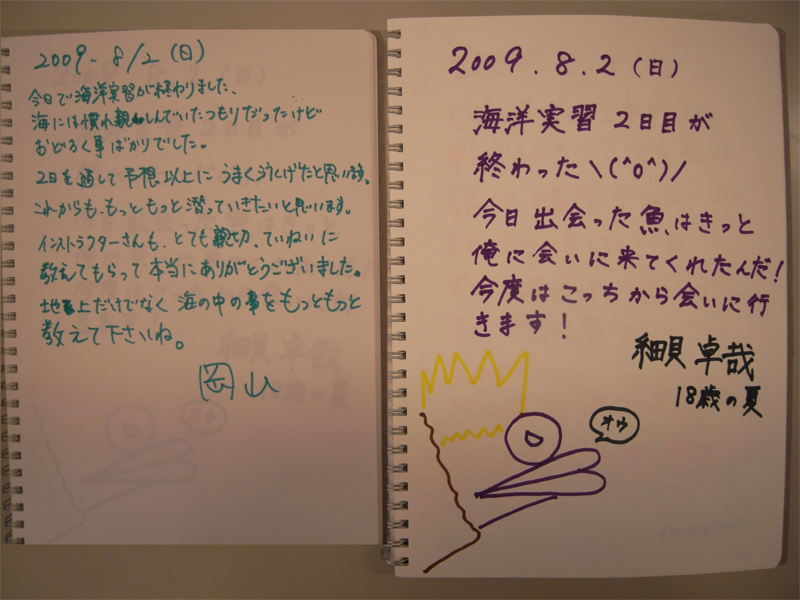 2009.8/2(日)
今日で海洋実習が終わりました。
海には慣れ親しんでいたつもりだったけど
おどろく事ばかりでした。
2日を通して予想以上にうまく泳げたと思います。
これからも、もっともっと潜っていきたいと思います。
インストラクターさんも、とても親切、ていねいに
教えてもらって本当にありがとうございました。
地上だけでなく海の中の事をもっともっと
教えて下さいね。
岡山
2009.8.2(日)
海洋実習 2日目が
終わった\(^o^)/
今日出会った魚はきっと
俺に会いに来てくれたんだ!
今度はこっちから会いに行
きます!
細貝 卓哉
18歳の夏